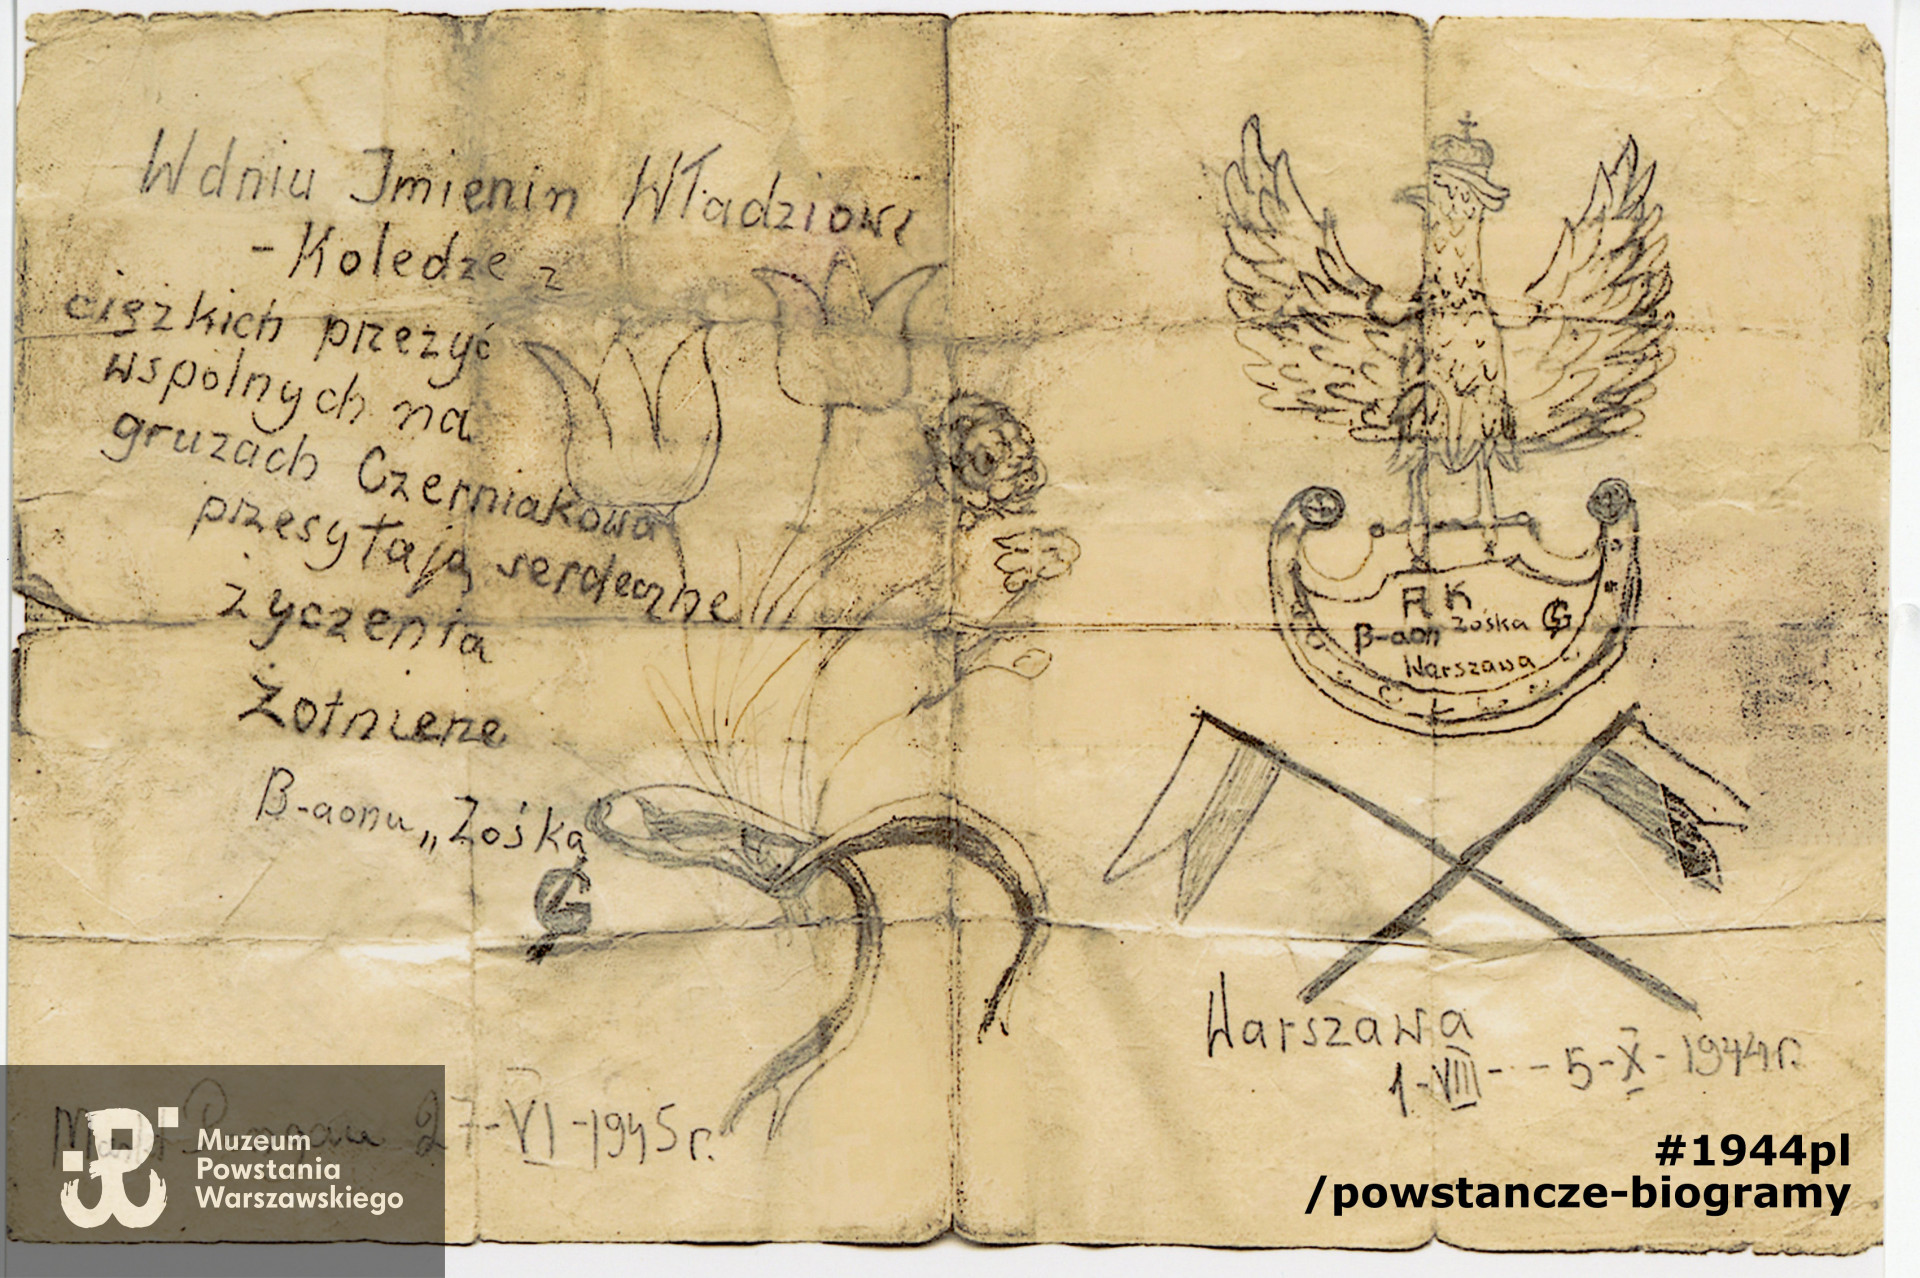 W dniu Imienin Władziowi
- Koledze z
ciężkich przeżyć
wspólnych na
gruzach Czerniakowa
przesyłają serdeczne
życzenia
Żołnierze
B-aonu „Zośka
27-VI-1945 r.
AK
B-aon Zośka
Warszawa
Warszawa
1-VIII--- 5-X- 1944 r.
Muzeum
Powstania
Warszawskiego
#1944pl
/powstancze-biogramy